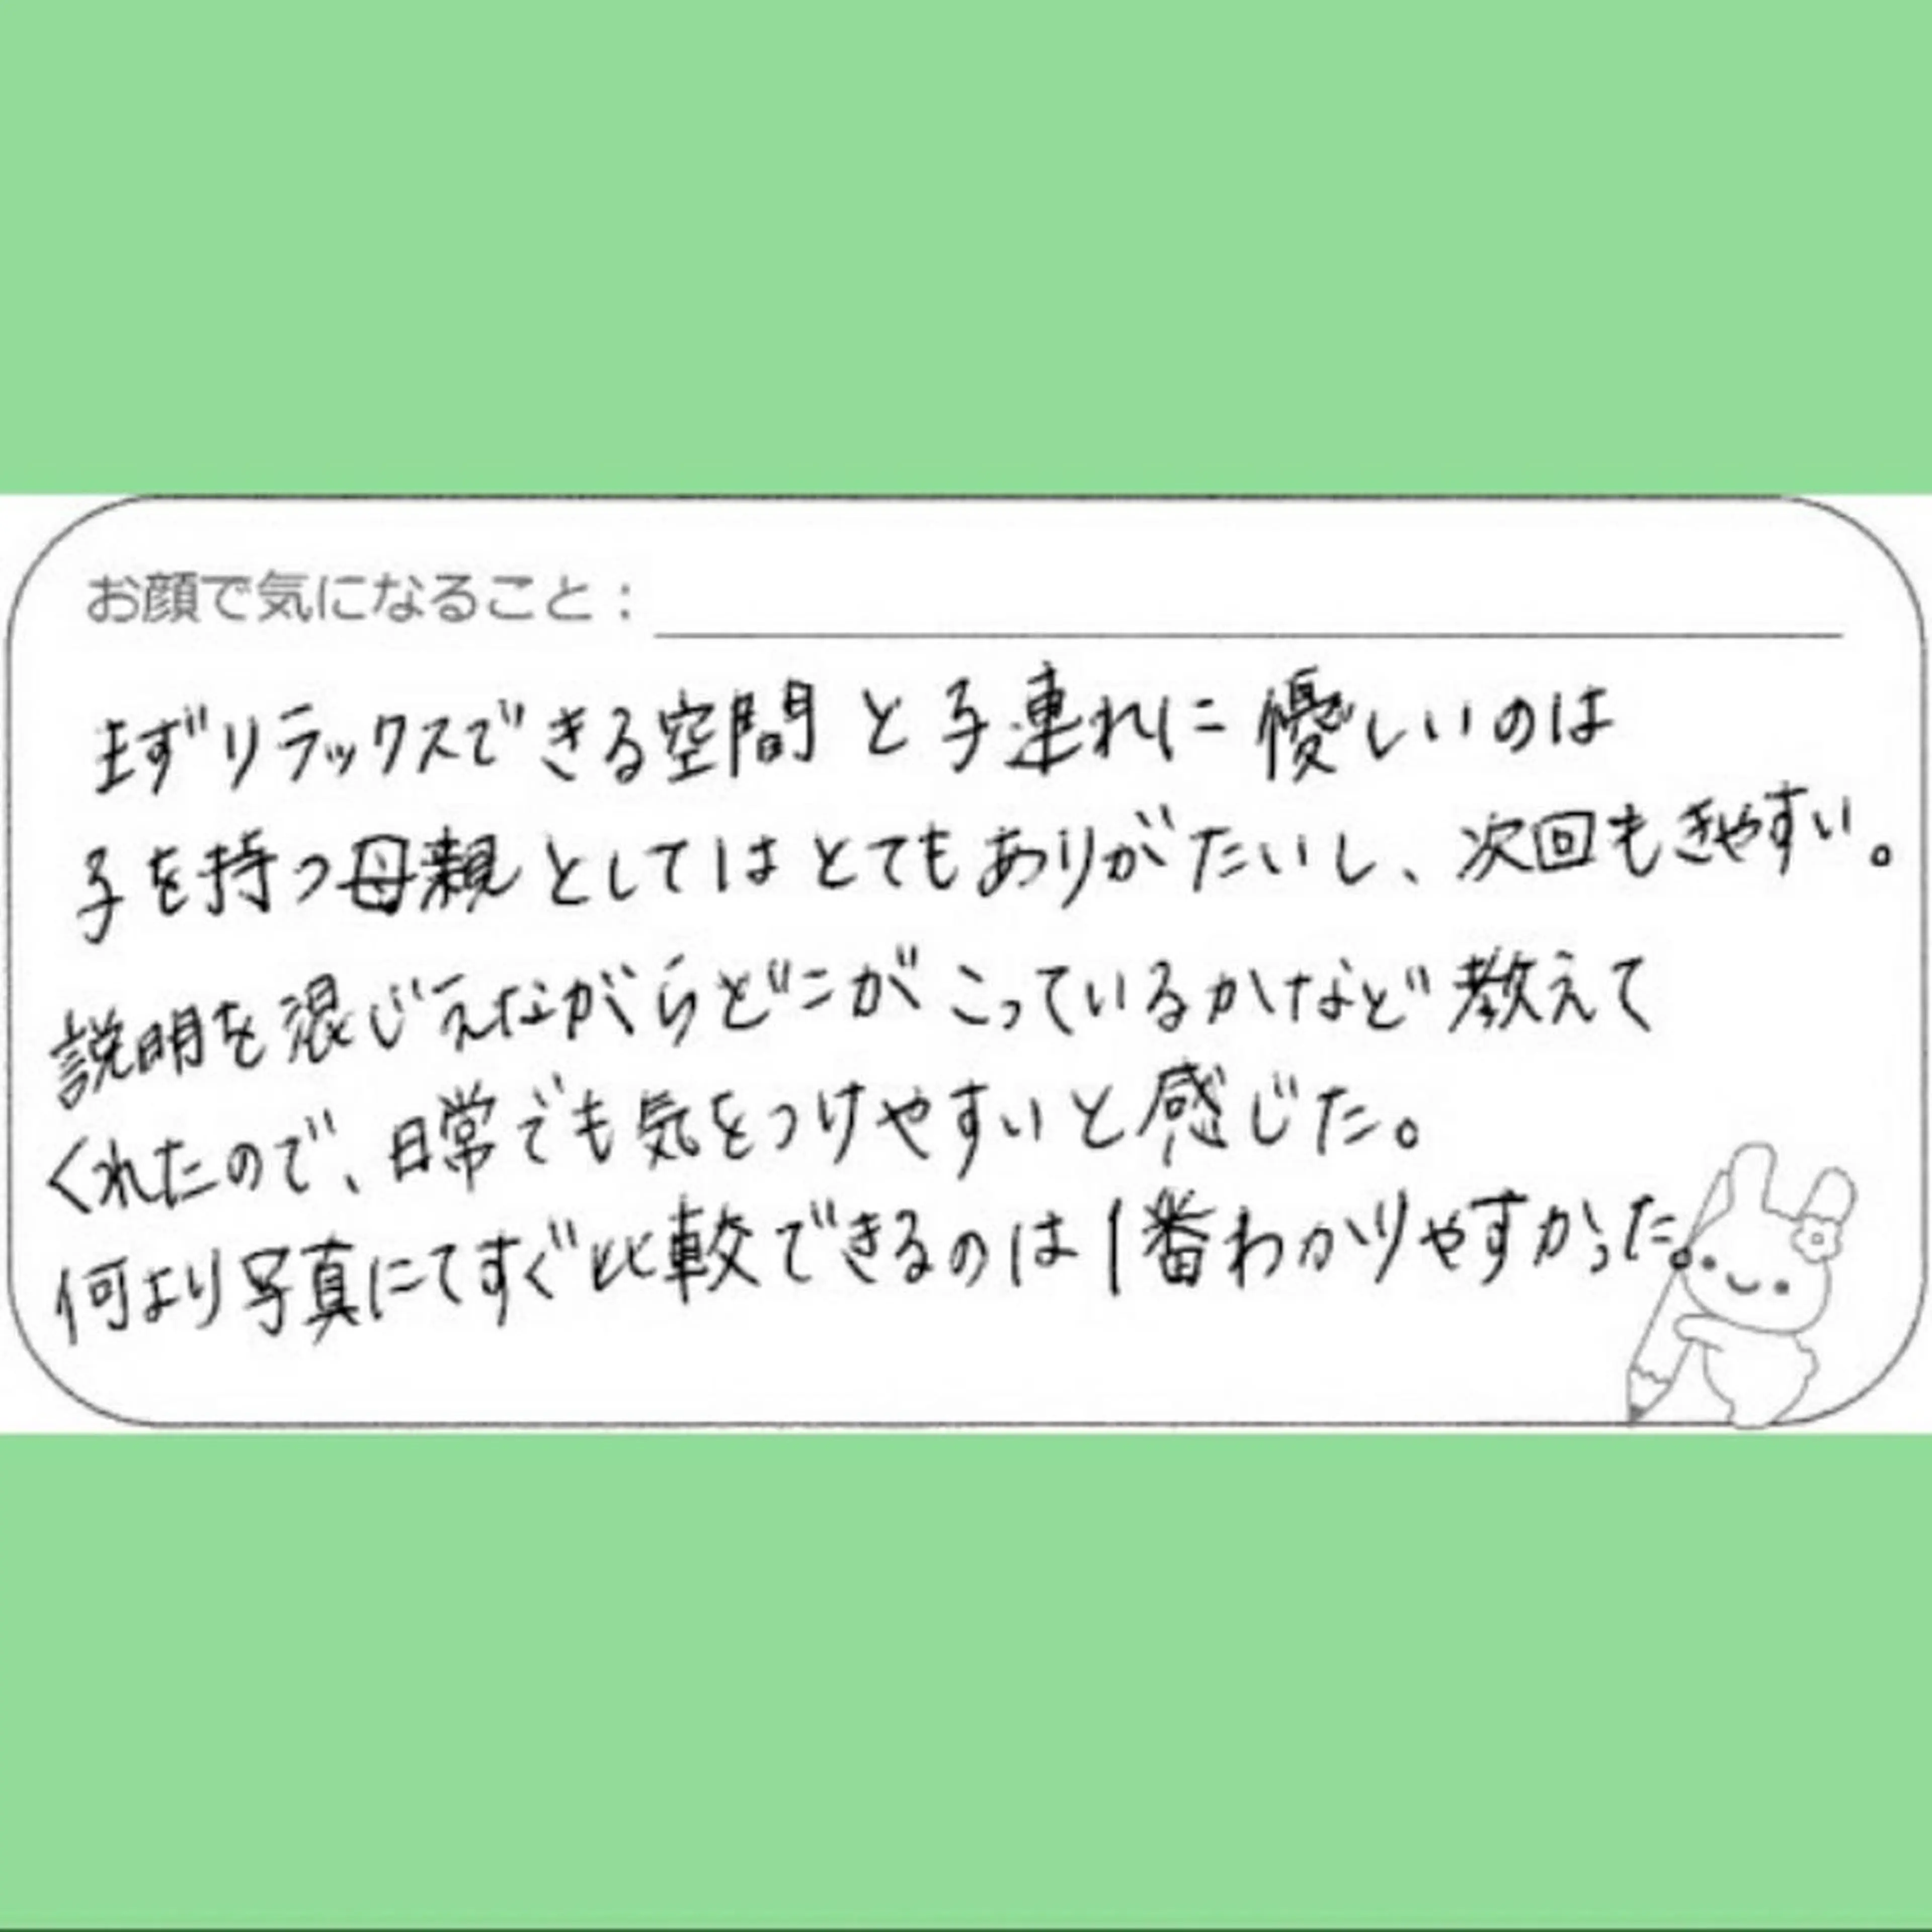 お顔で気になること：
まずリラックスできる空間と子連れに優しいのは
子を持つ母親としてはとてもありがたいし、次回もきやすい。
説明を混じえながらどこがこっているかなど教えて
くれたので、日常でも気をつけやすいと感じた。
何より写真にてすぐ比較できるのは1番わかりやすかった。